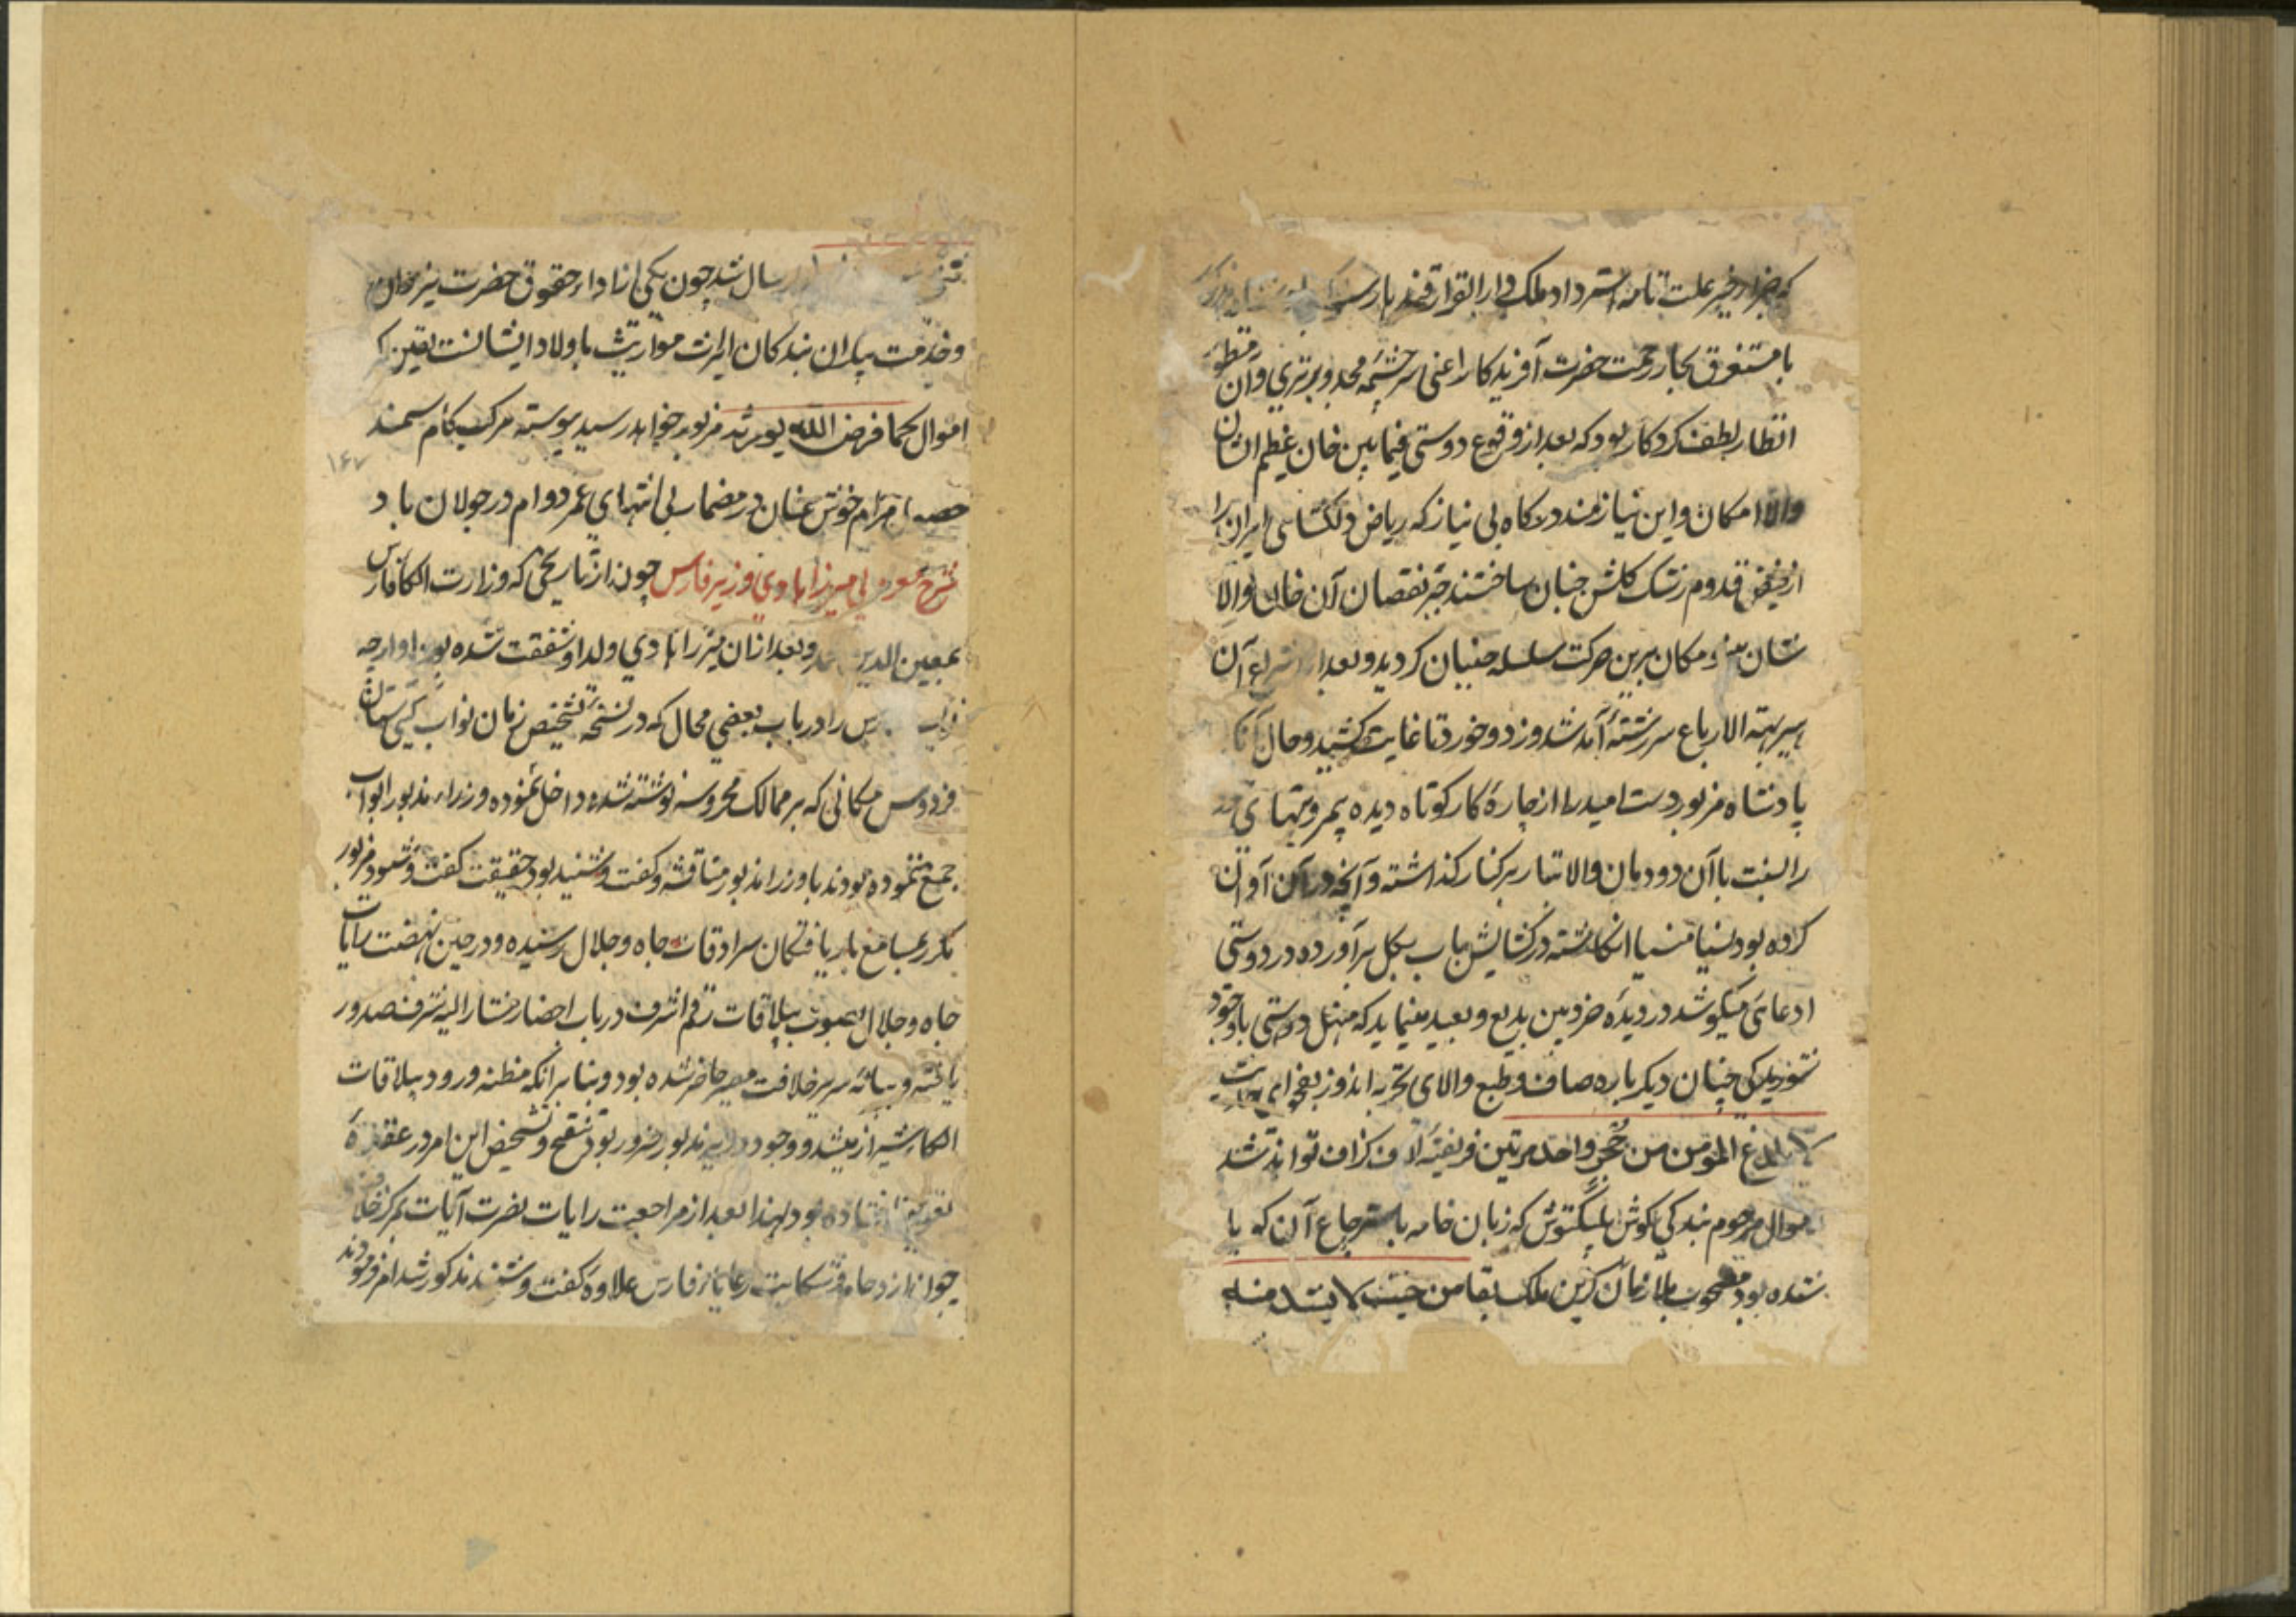 که جزا و خیر علت تامه استرداد ملک دار القرار قندهار
با مستغرق بحار رحمت حضرت آفریدکار اعنی سرچشمه مجد و برتری و آن منظور
انظار لطف کردکار بود که بعد از وقوع دوستی فیما بین خان عظیم الشان
والا مکان و این نیازمند درکاه بی نیاز که ریاض دلکشای ایران را
از فیض قدوم رشک کلشن جنان ساختند جبر نقصان آن خان والا
شان مکان برین حرکت سلسله جنبان کردید و بعد از آن
سربهة الارباع سررشته آمد شد و زد و خورد تا غایت کشید و حال آنکه
پادشاه مزبور دست امید را از چاره کار کوتاه دیده بیمروتیهای
را نسبت با آن دودمان والا تبار بر کنار کذاشته و آنچه در آن آوان
کرده بود نسیا منسیا انکاشته در کشایش باب بکل برآورده در دوستی
ادعای میکوشد در دیده خردبین بدیع و بعید مینماید که منهل دوستی باوجود
چنان دیکرباره صاف و طبع والای تجربه اندوز بفحوای
لا یلدغ المؤمن من جحر واحد مرتین فریفته لاف و کزاف تواند شد
اموال مرحوم بندکی کوش یلنکتوش که زبان خامه باسترجاع آن کویا
شده بود مصحوب ملازمان کزین ملک بقا من حیث لا یشذ منه
ارسال شد چون یکی از اداء حقوق حضرت یزدان
و خدمت پدران بندکان ایرث مواریث باولاد ایشانست یقین که
اموال بحکم فرض الله بورثه مزبور خواهد رسید پیوسته مرکب کام سمند
مرام خوش عنان در مضمار بی انتهای عمر دوام در جولان باد
شرح معزولی میرزا هادی وزیر فارس چون از تاریخی که وزارت الکا فارس
بمعین الدین محمد و بعد از ان میرزا هادی ولد او شفقت شده بود اوارجه
را در باب بعضی محال که در نسخه تشخیص زمان نواب کیتی ستان
فردوس مکانی که بر ممالک محروسه نوشته شده داخل نموده وزراء مذبور ابواب
جمع ننموده بودند با وزراء مذبور مناقشه و کفت و شنید بود حقیقت کفت و شنود مزبور
مکرر بمسامع باریافتکان سرادقات جاه و جلال رسیده و در حین نهضت رایات
جاه و جلال بصوب ییلاقات رقم اشرف در باب احضار مشار الیه شرف صدور
یافته و بپایه سریر خلافت مصیر حاضر شده بود و بنابر آنکه مظنه ورود ییلاقات
الکاء شیراز میشد و وجود وزیر مذبور ضرور بود تنقیح و تشخیص این امر در عقده
تعویق افتاده بود لهذا بعد از مراجعت رایات نصرت آیات بمرکز خلافت
چون ازدحام و شکایت رعایای فارس علاوه کفت و شنید مذکور شد امر فرمودند
۱۶۷